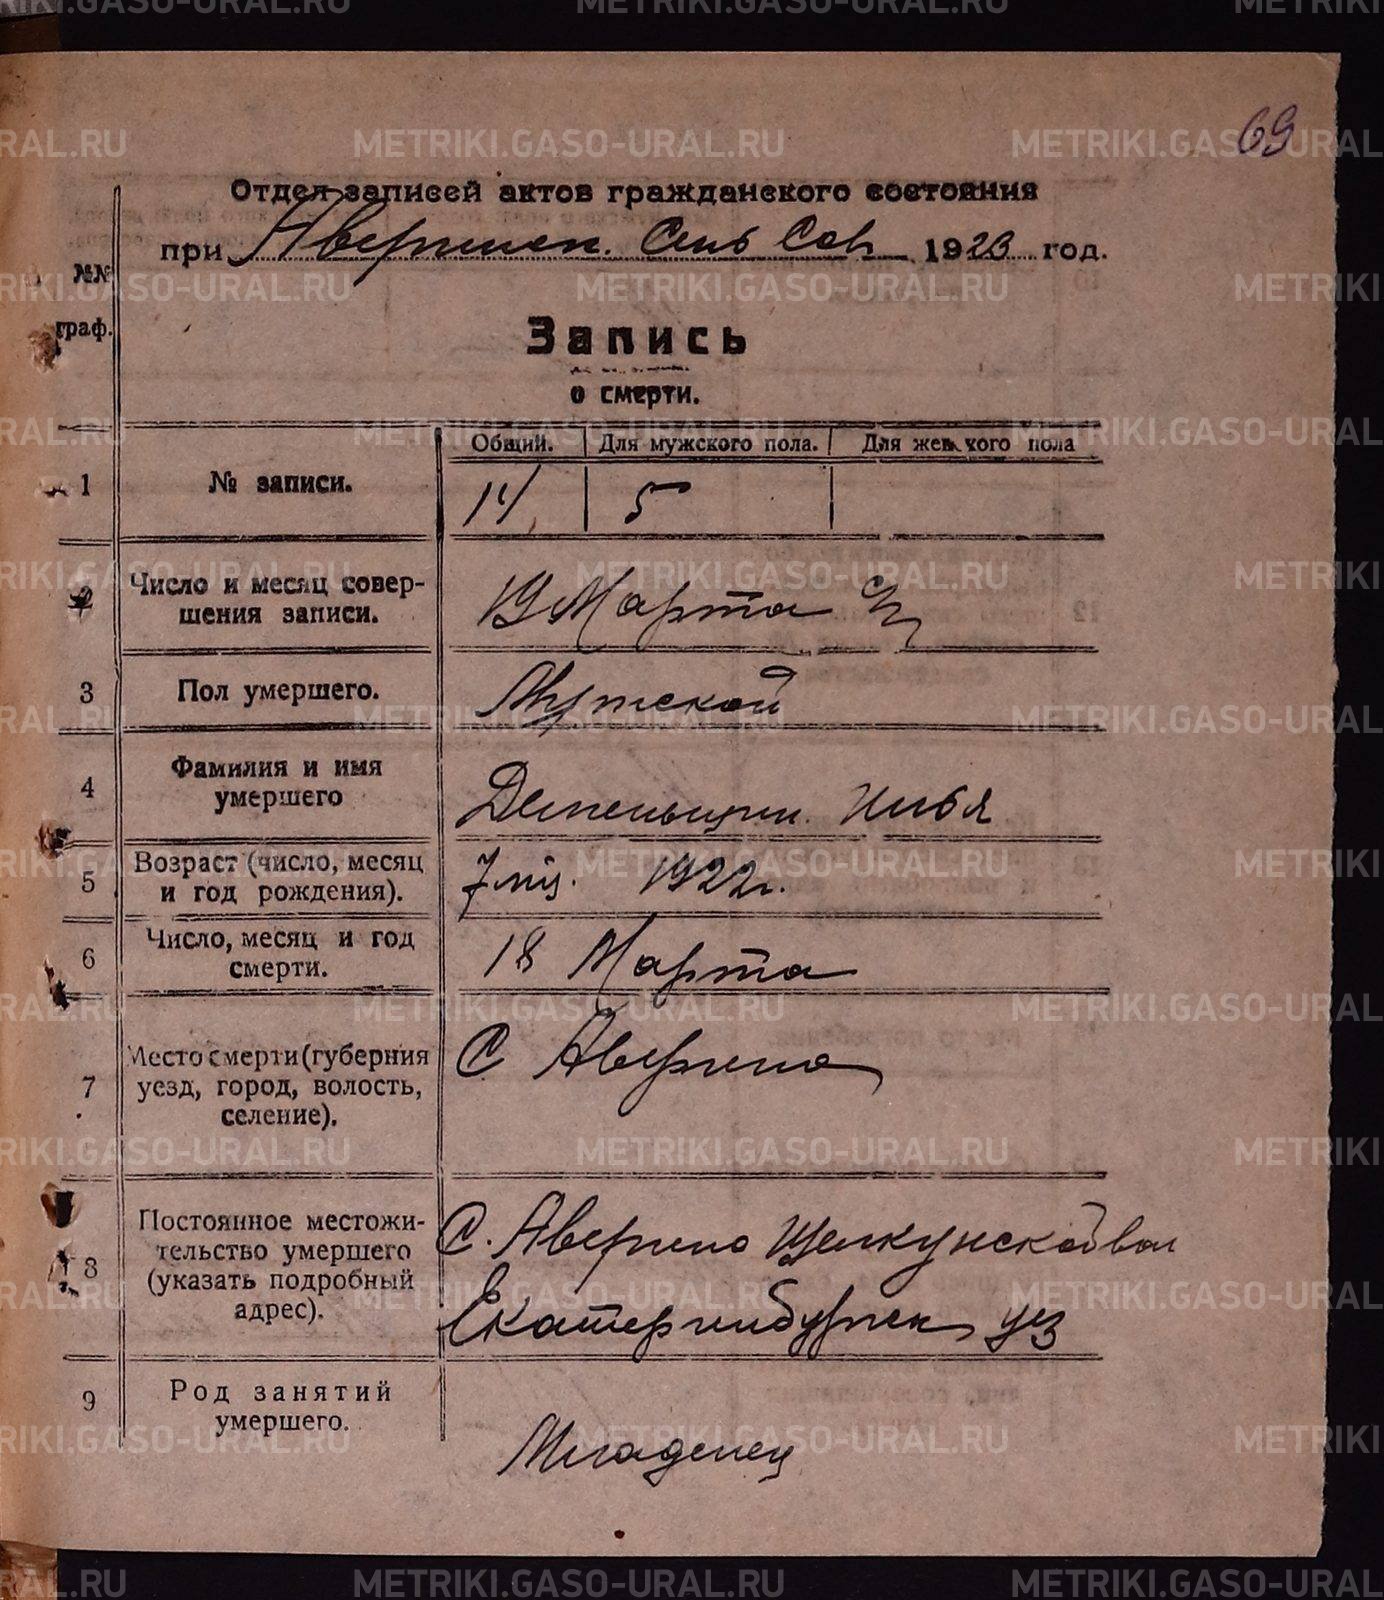 69
Отдел записей актов гражданского состояния
при Аверинск. Сель Сов 1923 год.
№№
граф.
Запись
о смерти.
Общий. Для мужского пола. Для женского пола
1 № записи. 14 5
2 Число и месяц совер-
шения записи. 19 Марта
3 Пол умершего. Мужской
4 Фамилия и имя
умершего Илья
5 Возраст (число, месяц
и год рождения). 7 1922 г.
6 Число, месяц и год
смерти. 18 Марта
7 Место смерти (губерния
уезд, город, волость,
селение). С Аверино
8 Постоянное местожи-
тельство умершего
(указать подробный
адрес). С. Аверино Щелкунской вол
Екатеринбургск уез
9 Род занятий
умершего. Младенец
METRIKI.GASO-URAL.RU